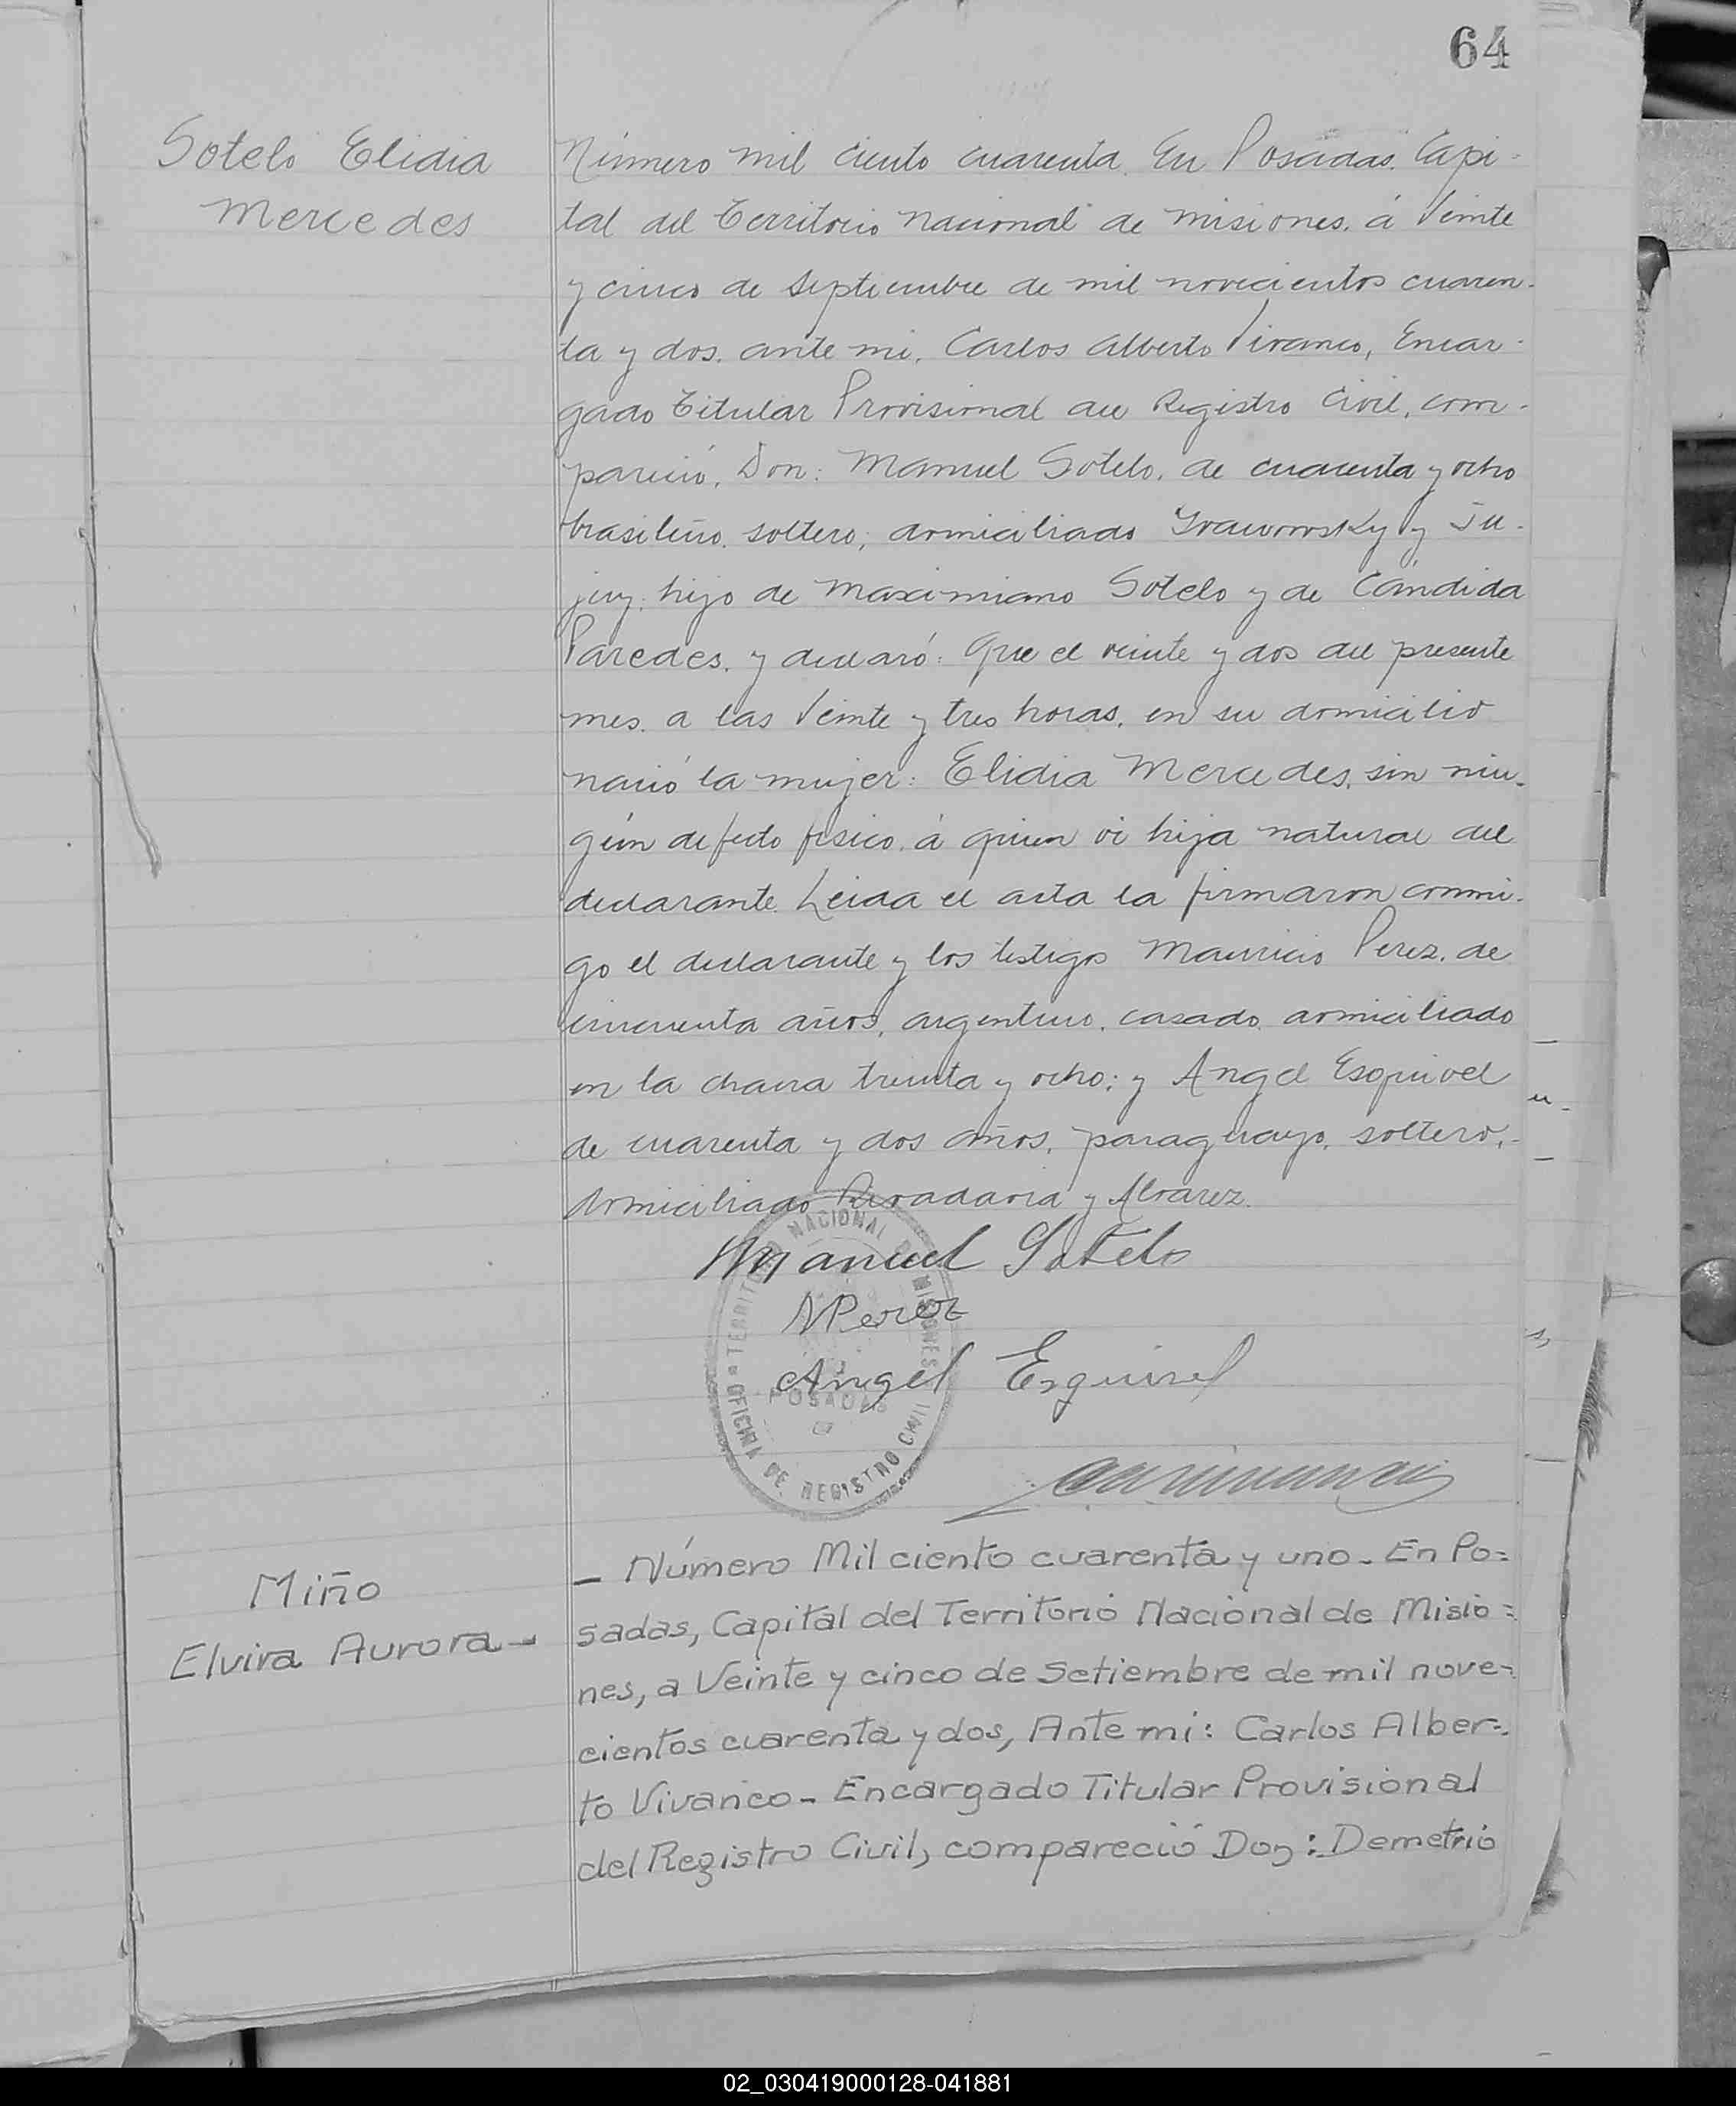 64
Sotelo Elidia
Mercedes
Número mil ciento cuarenta. En Posadas. Capi-
tal del Territorio nacional de misiones. á Veinte
y cinco de septiembre de mil novecientos cuaren-
ta y dos. ante mi, Carlos Alberto Vivanco, Encar-
gado Titular Provisional del Registro Civil, com-
pareció. Don: Manuel Sotelo. de cuarenta y ocho
brasileño. soltero; domiciliado y Ju-
juy; hijo de Maximiano Sotelo y de Cándida
Paredes. y declaró: Que el veinte y dos del presente
mes. a las Veinte y tres horas. en su domicilio
nació la mujer: Elidia Mercedes. sin nin-
gún defecto fisico. á quien vi hija natural del
declarante. Leida el acta la firmaron conmi-
go el declarante y los testigos Mauricio Perez. de
cincuenta años, argentino. casado. domiciliado
en la chacra treinta y ocho; y Angel Esquivel
de cuarenta y dos años. paraguayo. soltero.-
domiciliado Rivadavia y Alvarez.
Manuel Sotelo
MPerez
Angel Esquivel
TERRITORIO NACIONAL DE MISIONES
POSADAS
OFICINA DE REGISTRO CIVIL
Miño
Elvira Aurora-
- Número Mil ciento cuarenta y uno- En Po=
sadas, Capital del Territorio Nacional de Misio=
nes, a Veinte y cinco de Setiembre de mil nove=
cientos cuarenta y dos, Ante mi: Carlos Alber=
to Vivanco- Encargado Titular Provisional
del Registro Civil, compareció Don: Demetrio
02_030419000128-041881